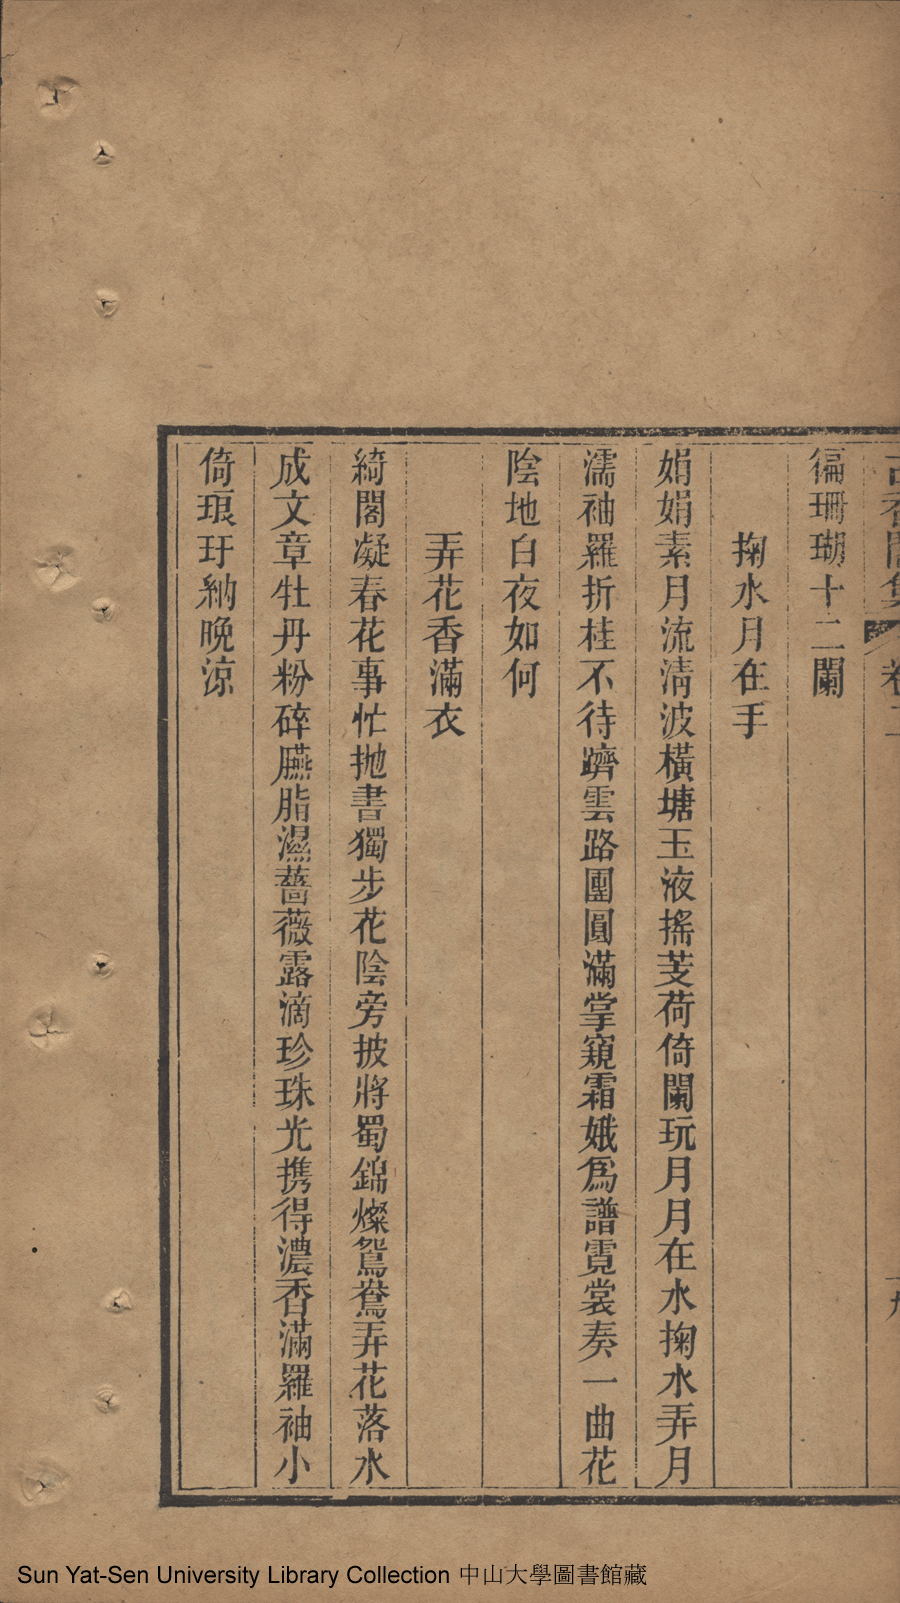 徧珊瑚十二闌
掬水月在手
娟娟素月流淸波橫塘玉液搖芰荷倚闌玩月月在水掬水弄月
濡袖羅折桂不待躋雲路團圓滿掌窺霜娥爲譜霓裳奏一曲花
陰地白夜如何
弄花香滿衣
綺閣凝春花事忙拋書獨步花陰旁披將蜀錦燦鴛鴦弄花落水
成文章牡丹粉碎臙脂濕薔薇露滴珍珠光携得濃香滿羅袖小
倚琅玕納晚涼
Sun Yat-Sen University Library Collection 中山大學圖書館藏